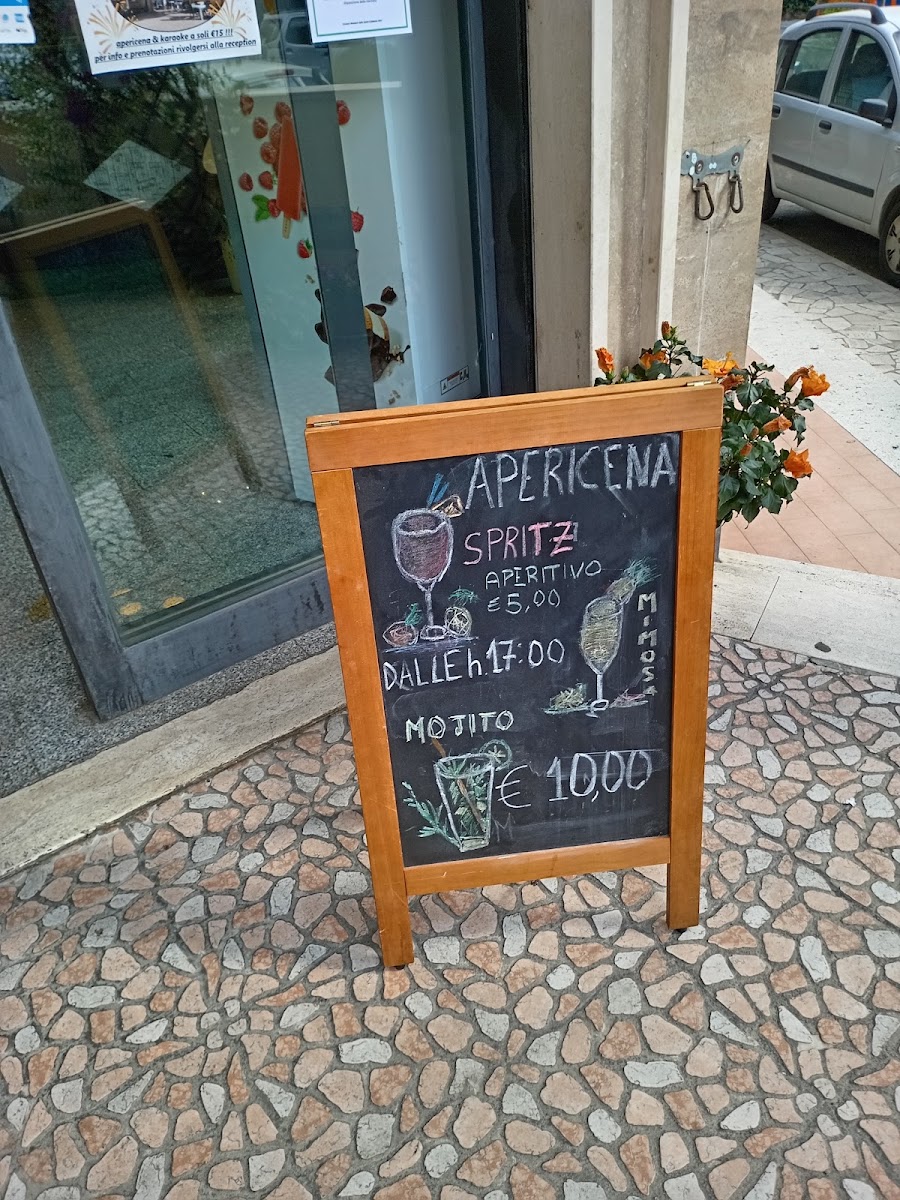 apericena & karaoke a soli €15 !!!
per info e prenotazioni rivolgersi alla reception
APERICENA
SPRITZ
APERITIVO
€ 5,00
MIMOSA
DALLE h. 17:00
MOJITO
€ 10,00